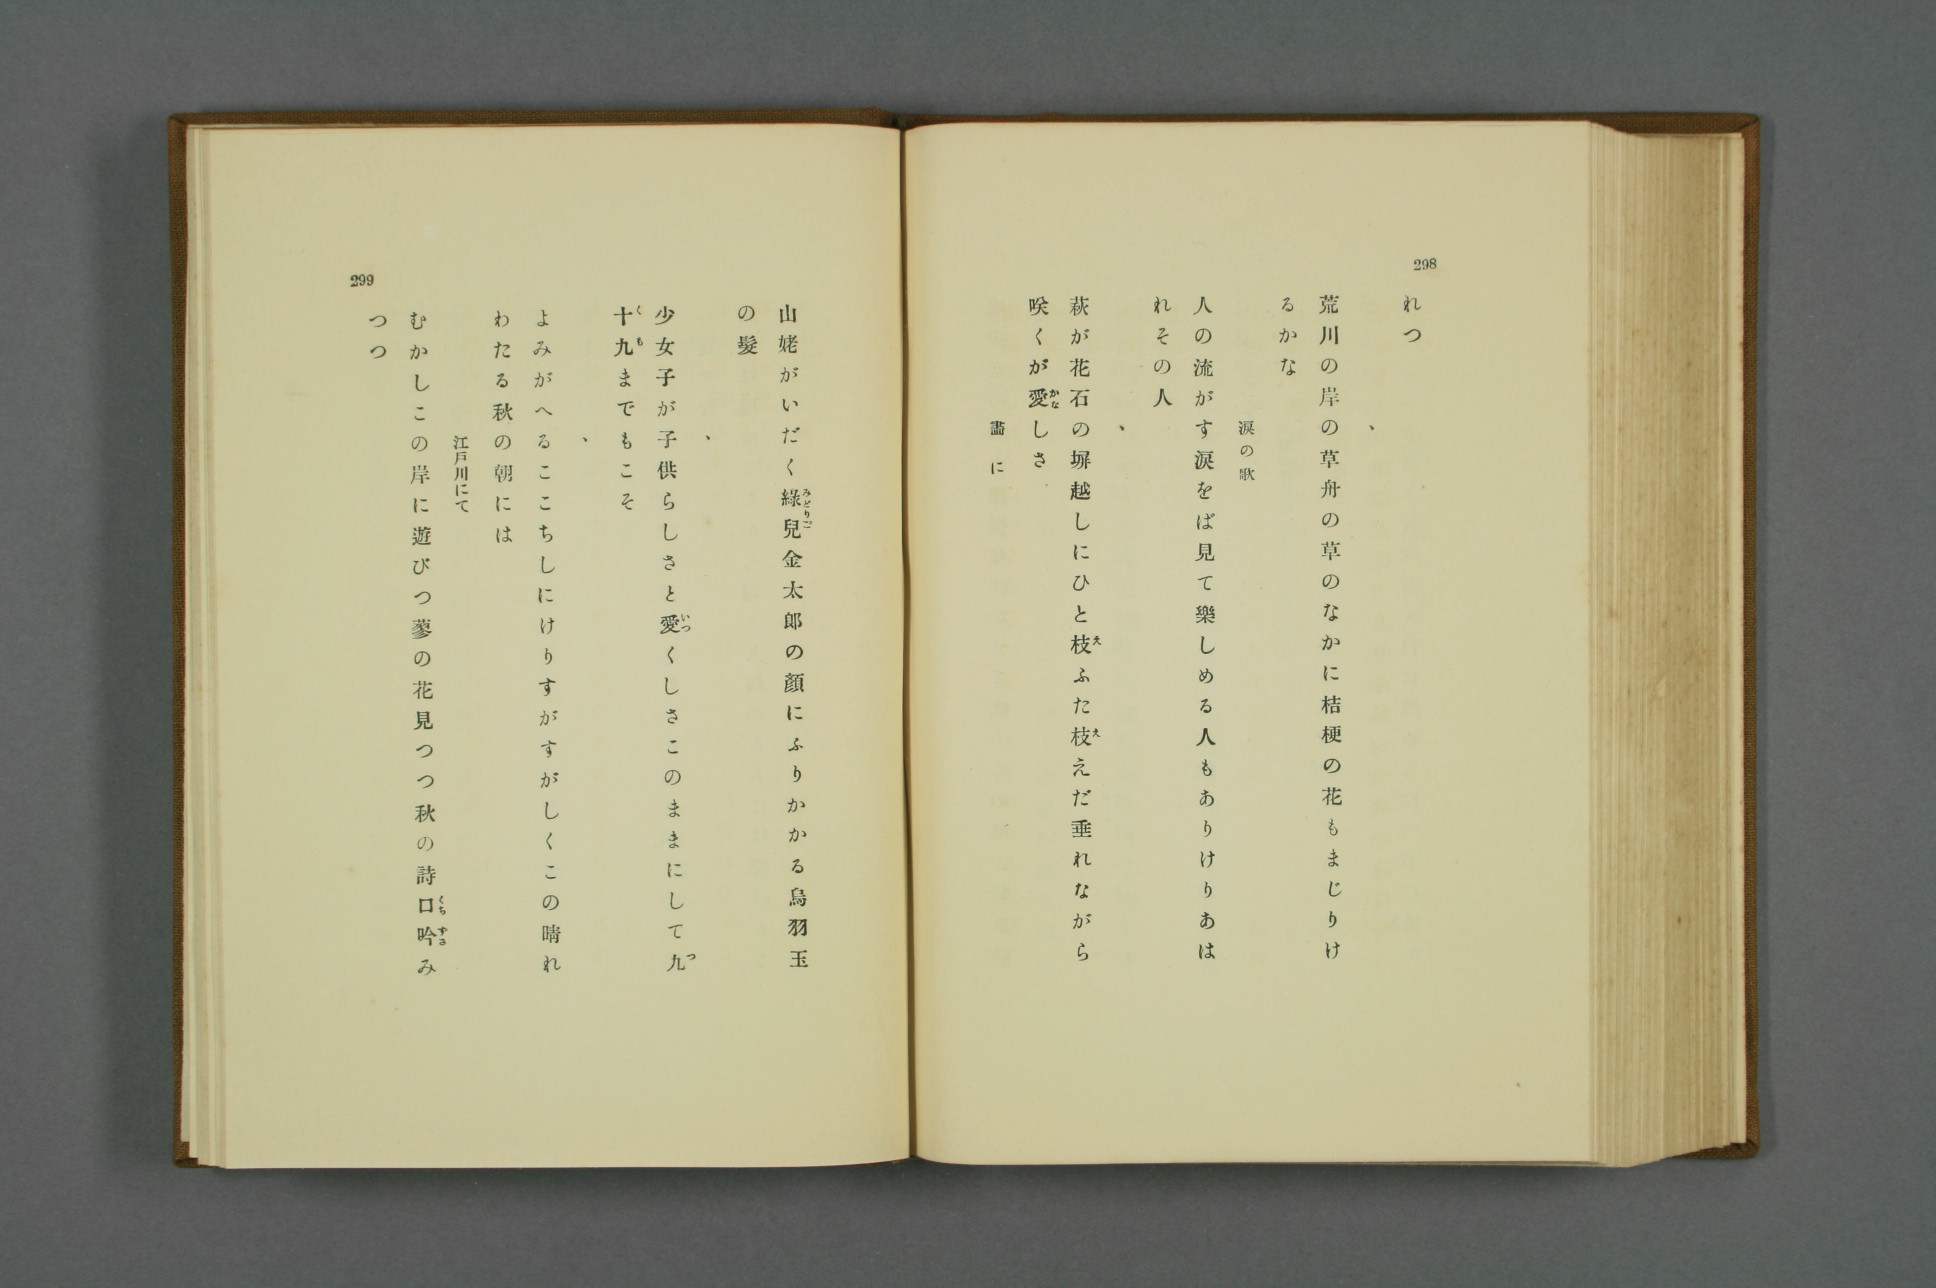 298
れつ
、
荒川の岸の草舟の草のなかに桔梗の花もまじりけ
るかな
淚の歌
人の流がす淚をば見て樂しめる人もありけりあは
れその人
、
萩が花石の塀越しにひと枝ふた枝えだ垂れながら
咲くが愛しさ
畵に
山姥がいだく綠兒金太郎の顏にふりかかる烏羽玉
の髮
、
少女子が子供らしさと愛くしさこのままにして九
十九までもこそ
、
よみがへるここちしにけりすがすがしくこの晴れ
わたる秋の朝には
江戸川にて
むかしこの岸に遊びつ蓼の花見つつ秋の詩口吟み
つつ
299